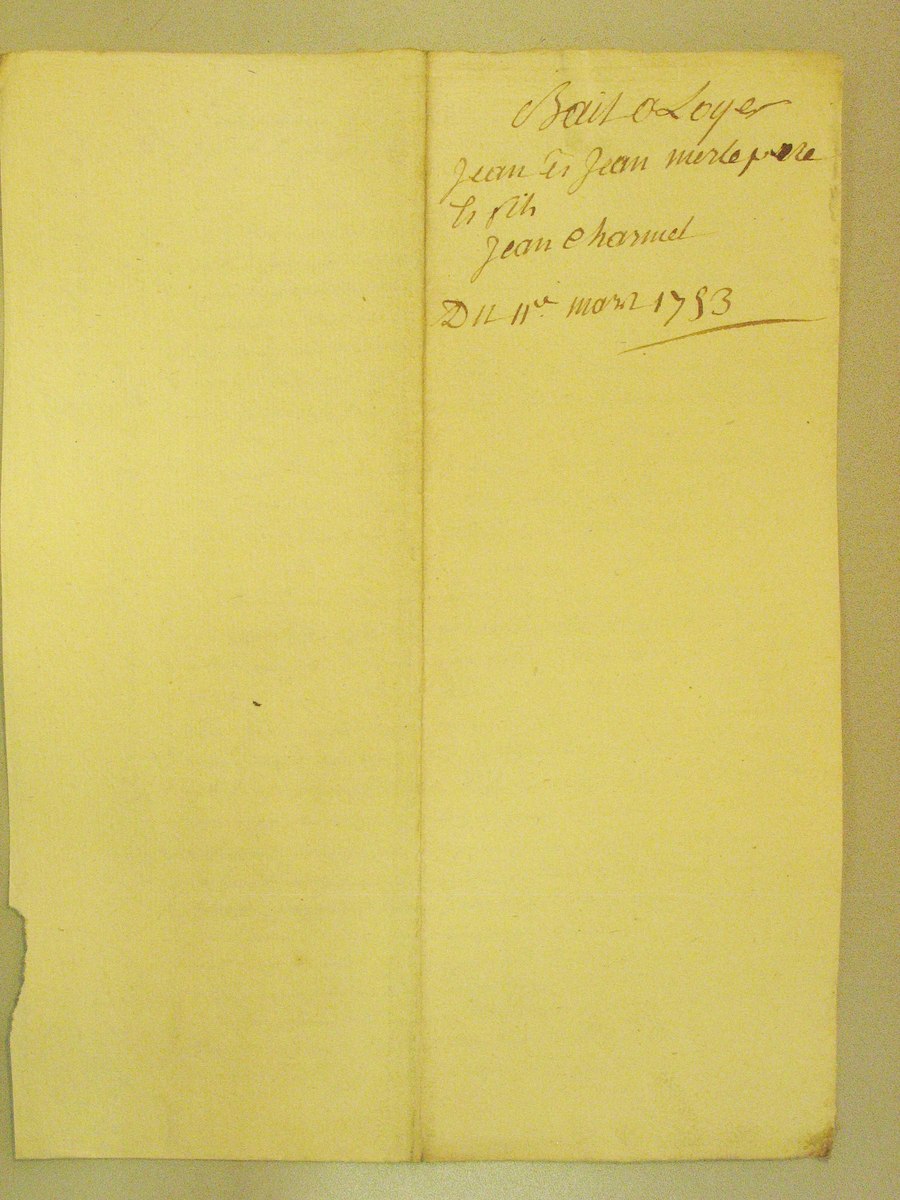 Bail a Loyer
Jean Et Jean merle pere
Et fils
Jean Charmel
Du 11e mars 1753